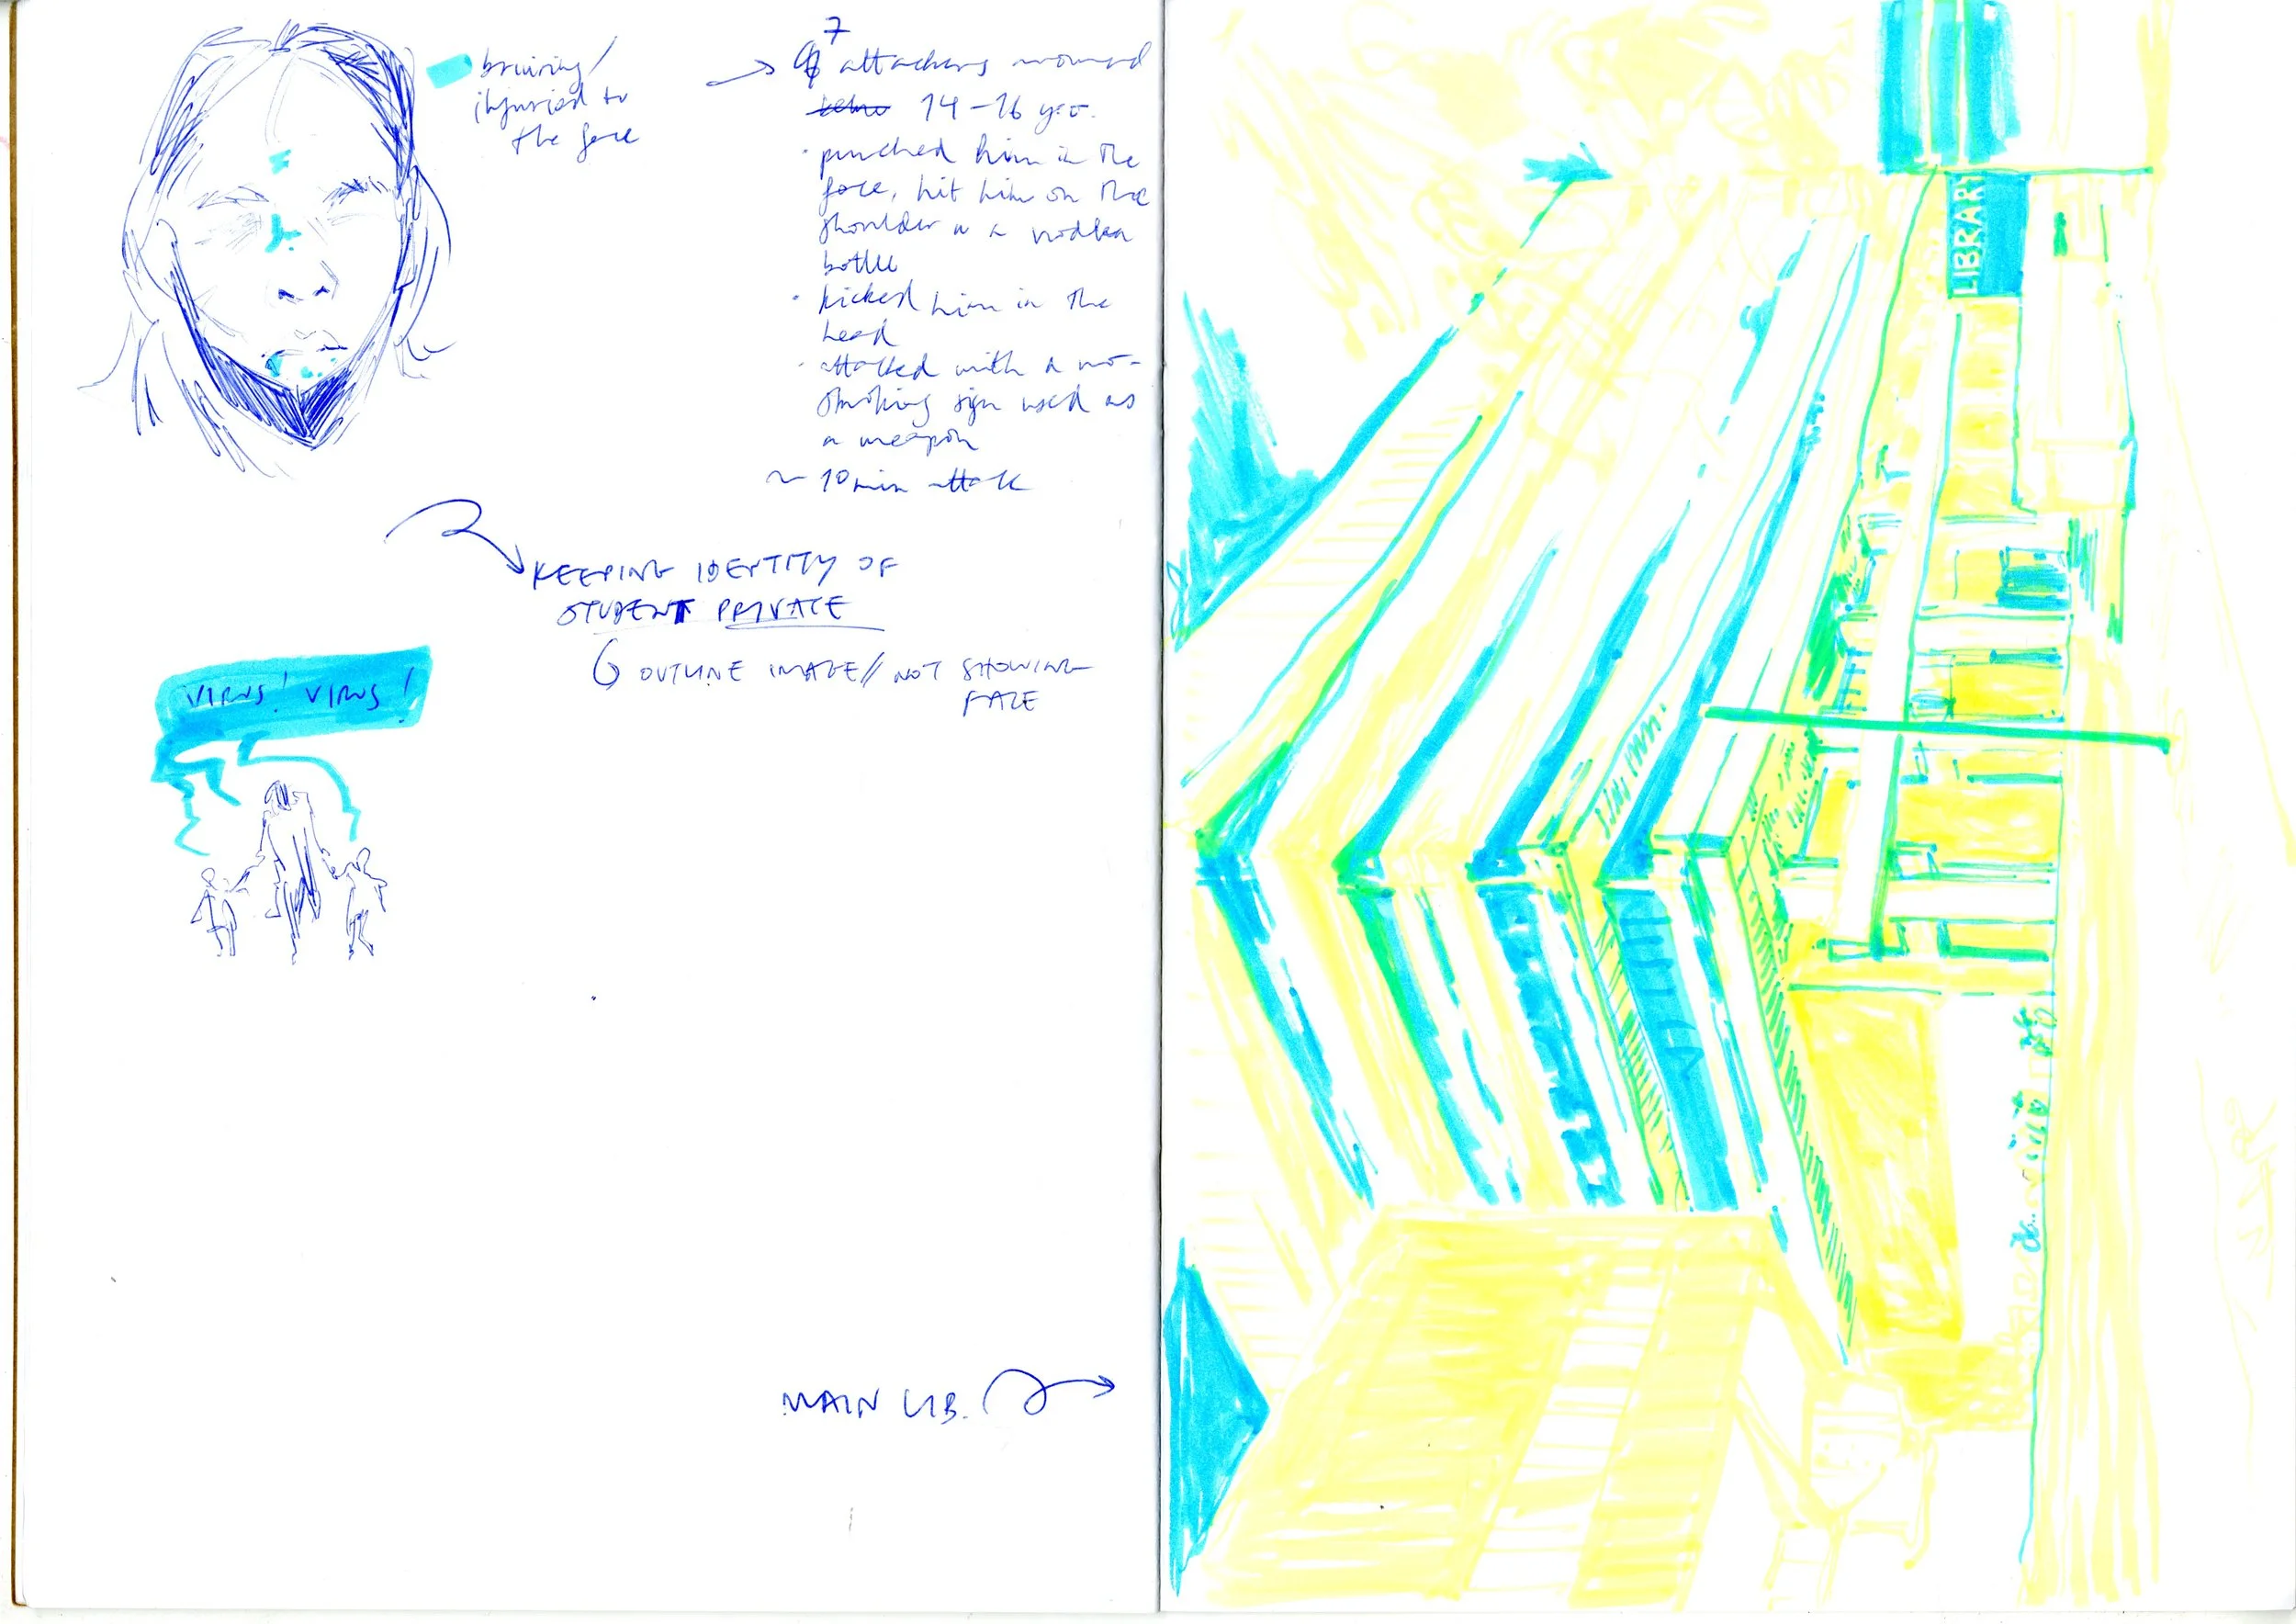 bruising/
injuries to
the face
7
attackers around
14-16 y.o.
· punched him in the
face, hit him on the
shoulder w a vodka
bottle
· kicked him in the
head
· attacked with a no-
smoking sign used as
a weapon
~ 10 min attack
KEEPING IDENTITY OF
STUDENT PRIVATE
OUTLINE IMAGE// NOT SHOWING
FACE
VIRUS! VIRUS!
MAIN LIB.
LIBRARY